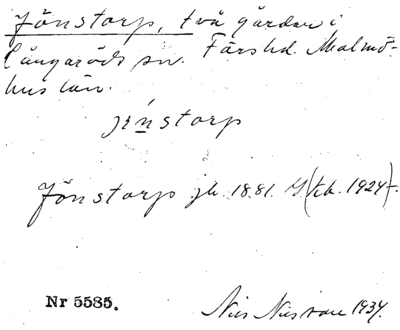 Jönstorp, två gårdar i
Långaröds sn. Färs hd. Malmö-
hus län.
jǿnstorp
Jönstorp jb. 1881. (kb. 1924).
Nr 5585.
Nils Nilsson 1934.